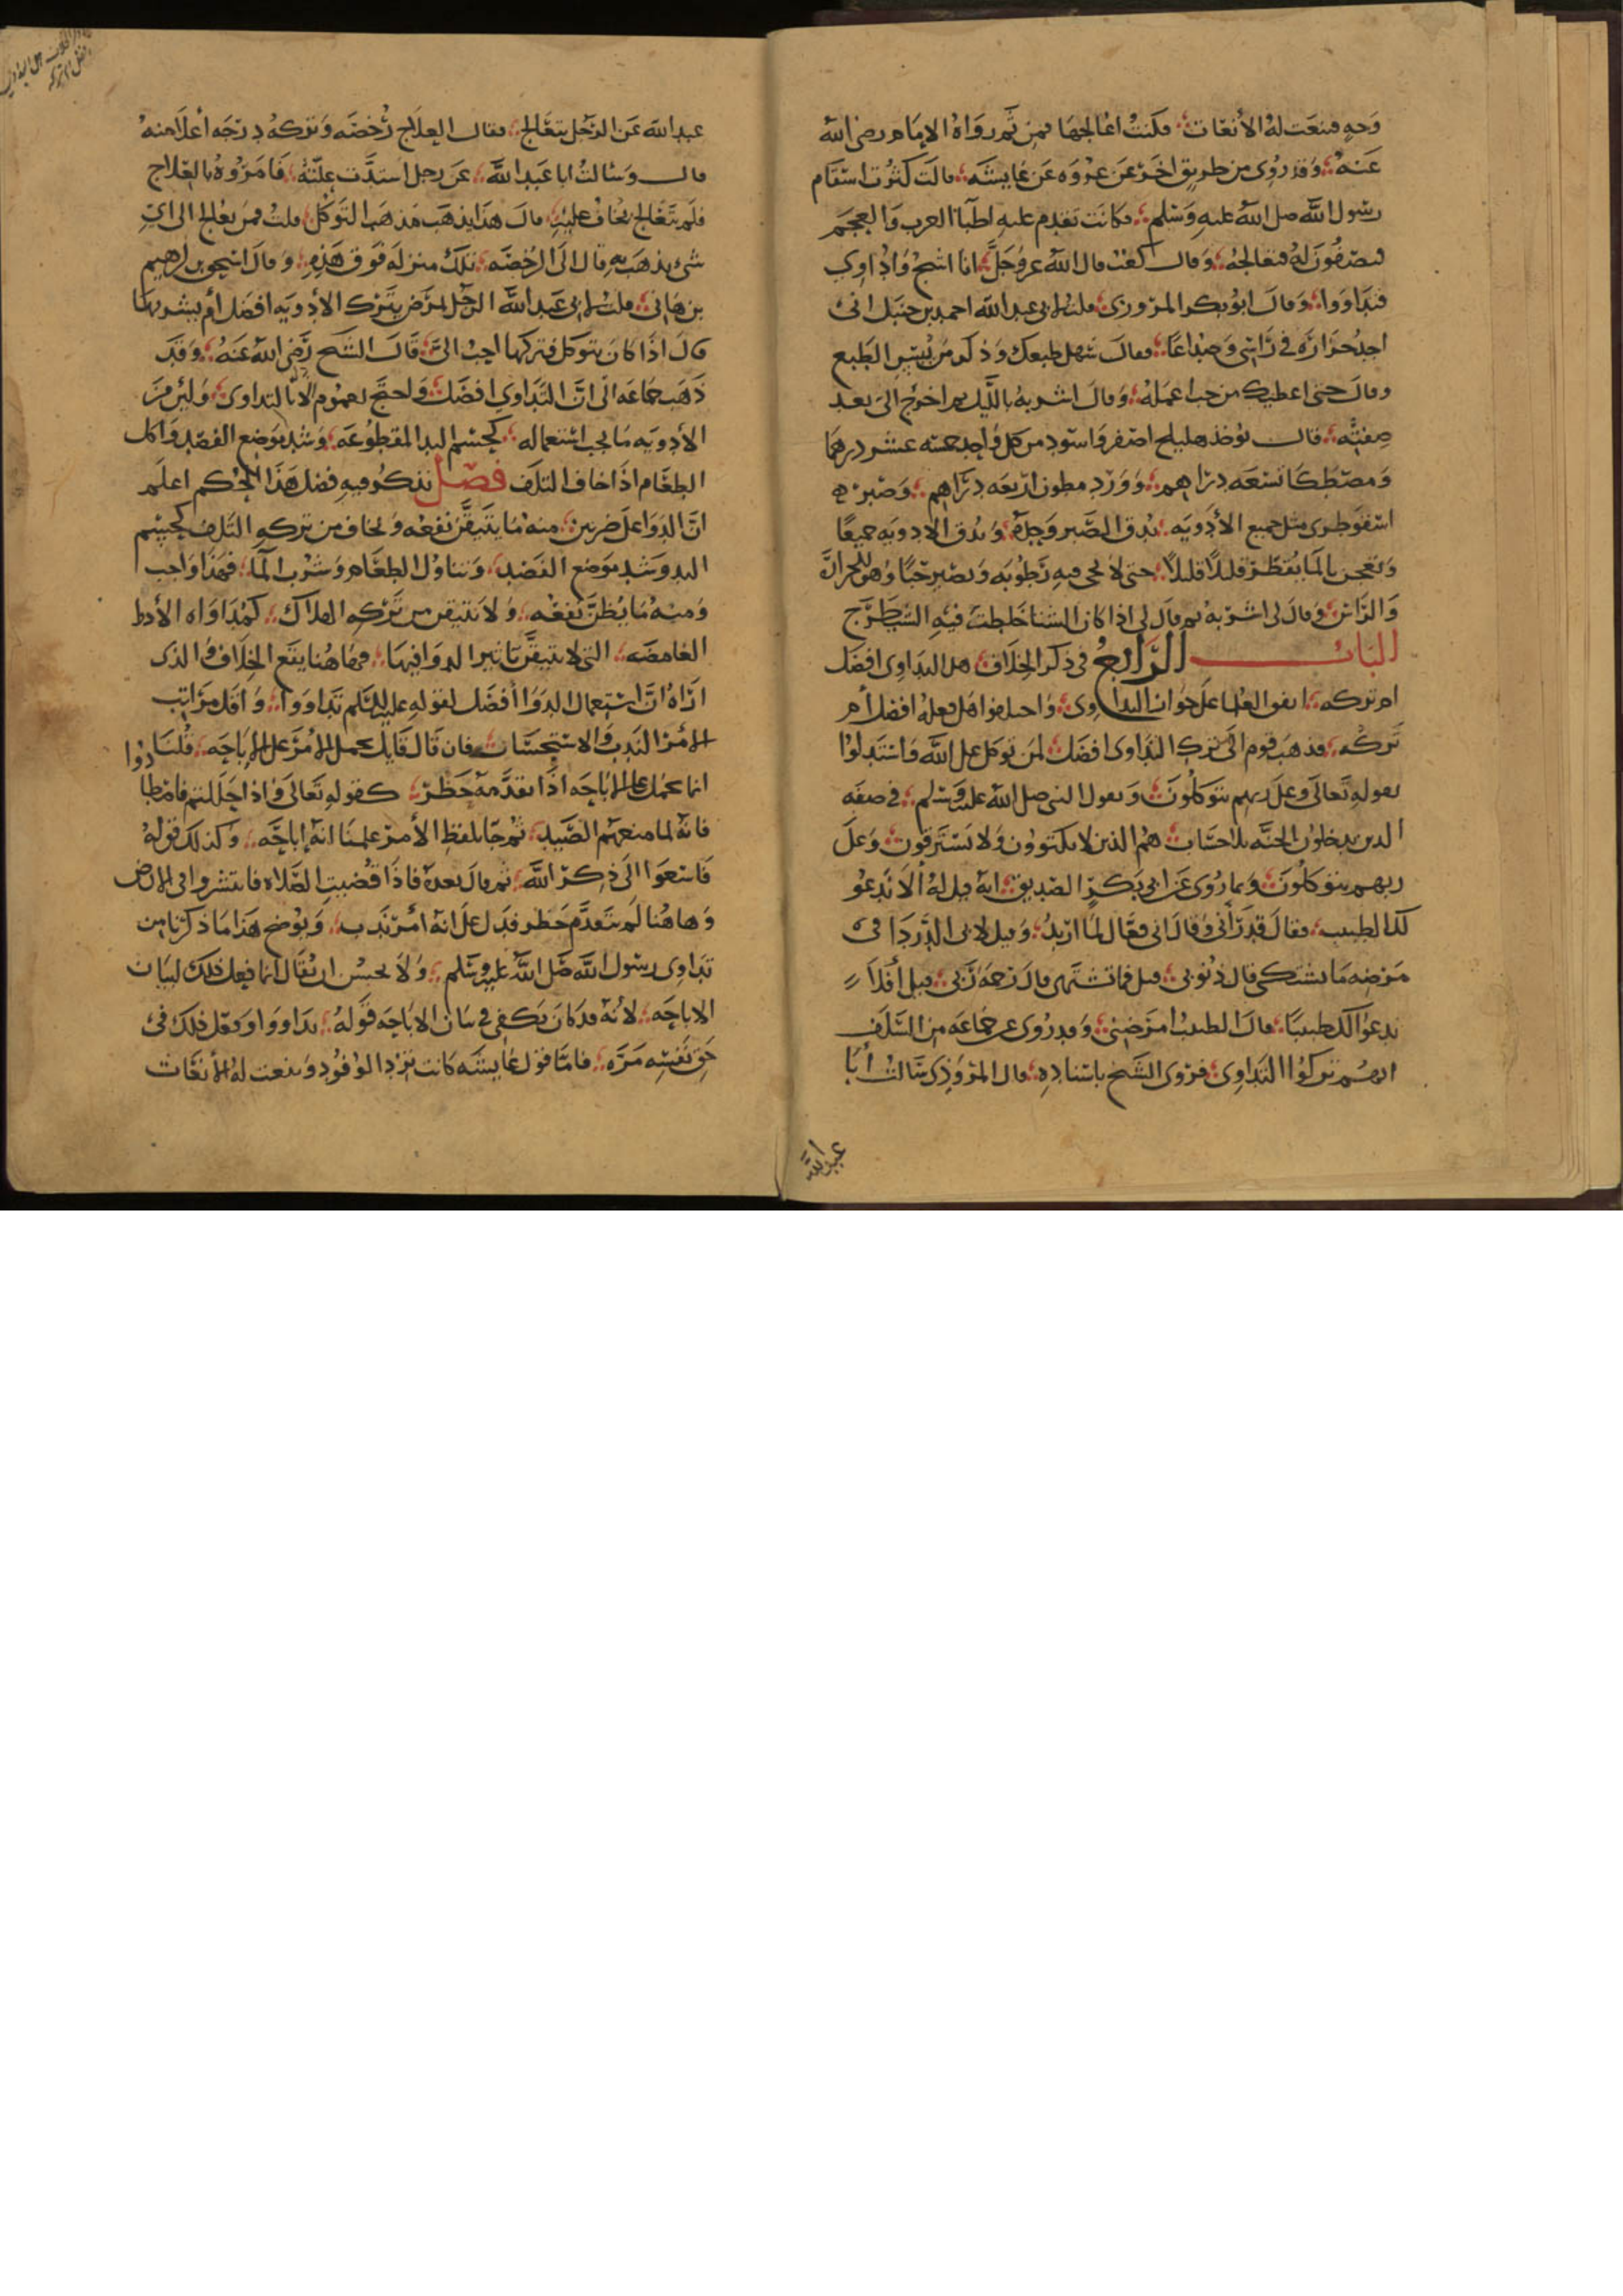 وجه فتنعت له الأنعات فكنت اعالجها فمن ثم رواه الامام رضي الله
عنه وقد روي من طريق اخر عن عروه عن عايشه قالت كثرت اسقام
رسول الله صلى الله عليه وسلم فكانت تقدم عليه اطباا العرب والعجم
فيصفون له فنعالجه وقال كعب قال الله عز وجل انا اشجع واداوي
فتداووا وقال ابو بكر المروزي قلت لابي عبد الله احمد بن حنبل اني
اجد حراره في راسي وصداعا فقال سهل طبعك وذكر من يبس الطبع
وقال حتى اعطيك من حب اعمله وقال اشربه بالليل ثم اخرج الي بعد
صفته قال يوخذ هليلج اصفر واسود من كل واحد خمسه عشر درهما
ومصطكا تسعه دراهم وورد مطحون اربعه دراهم وصبر
اسقوطري مثل جميع الأدويه يدق الصبر وحده ويدق الادويه جميعا
وتعجن بالما يقطر قليلا قليلا حتى لا يحى فيه رطوبه ويصير حبا وهو للحران
والراس وقال لي اشربه ثم قال لي اذا كان الشتا خلطت فيه الشيطرج
الباب الرابع في ذكر الخلاف هل التداوي افضل
ام تركه اتفق العلما على جواز التداوي واختلفوا هل فعله افضل أم
تركه فذهب قوم الى ترك التداوي افضل لمن توكل على الله واستدلوا
بقوله تعالى وعلى ربهم يتوكلون وبقول النبي صلى الله عليه وسلم في صفه
الذين يدخلون الجنه بلا حساب هم الذين لا يكتوون ولا يسترقون وعلى
ربهم يتوكلون وبما روي عن ابي بكر الصديق انه قيل له ألا ندعو
لك الطبيب فقال قد رآني وقال اني فعال لما اريد وقيل لابي الدردا في
مرضه ما تشتكي قال ذنوبي قيل فما تشتهي قال رحمة ربي قيل أفلا
ندعو لك طبيبا قال الطبيب امرضني وقد روي عن جماعه من السلف
انهم تركوا التداوي فروى الشيخ باسناده قال المروذي سالت أبا
عبد الله
عبد الله عن الرجل يتعالج فقال العلاج رخصه وتركه درجه أعلا منه
قال وسالت ابا عبد الله عن رجل اشتدت علته فامروه بالعلاج
فلم يتعالج يخاف عليه قال هذا يذهب مذهب التوكل قلت فمن يعالج الى اي
شي يذهب به قال الى الرخصه تلك منزله فوق هذه وقال اسحق بن ابرهيم
بن هاني قلت لابي عبد الله الرجل يمرض يترك الأدويه افضل أم يشربها
قال اذا كان يتوكل فتركها احب الي قال الشيخ رضي الله عنه وقد
ذهب جماعه الى ان التداوي افضل واحتج لعموم الأمر بالتداوي وليس من
الأدويه ما يجب استعماله كحسم اليد المقطوعه وشد موضع الفصد واكل
الطعام اذا خاف التلف فصل نذكر فيه فصل هذا الحكم اعلم
ان الدوا على ضربين منه ما يتيقن نفعه ويخاف من تركه التلف كحسم
اليد وشد موضع الفصد وتناول الطعام وشرب الما فهذا واجب
ومنه ما يظن نفعه ولا يتيقن من تركه الهلاك كمداواه الأدوا
الغامضه التي لا يتيقن تاثير الدوا فيها فهاهنا يقع الخلاف والذي
اراه ان استعمال الدوا أفضل لقوله عليه السلم تداووا واقل مراتب
الأمر الندب والاستحسان فان قال قايل يحمل الأمر على الاباحه قلنا
انما يحمل على الاباحه اذا تقدمه حظر كقوله تعالى واذا حللتم فاصطادوا
فانه لما منعهم الصيد ثم جا بلفظ الأمر علمنا انه إباحه وكذلك قوله
فاسعوا الى ذكر الله ثم قال بعده فاذا قضيت الصلاه فانتشروا في الارض
وهاهنا لم يتقدم حظر فدل على انه أمر ندب ويوضح هذا ما ذكرنا من
تداوي رسول الله صلى الله عليه وسلم ولا يحسن ان يقال انما فعل ذلك لبيان
الاباحه لأنه قد كان يكفي في بيان الاباحه قوله تداووا وفعل ذلك في
حق نفسه مره فاما قول عايشه كانت ترد الوفود وتنعت له الأنعات